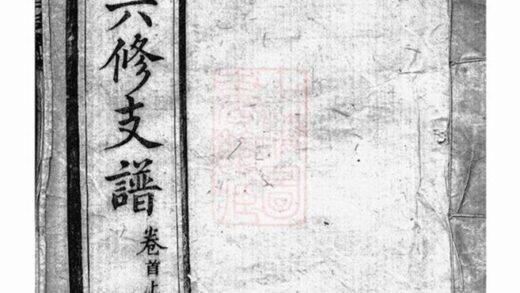 六修支譜
卷首上